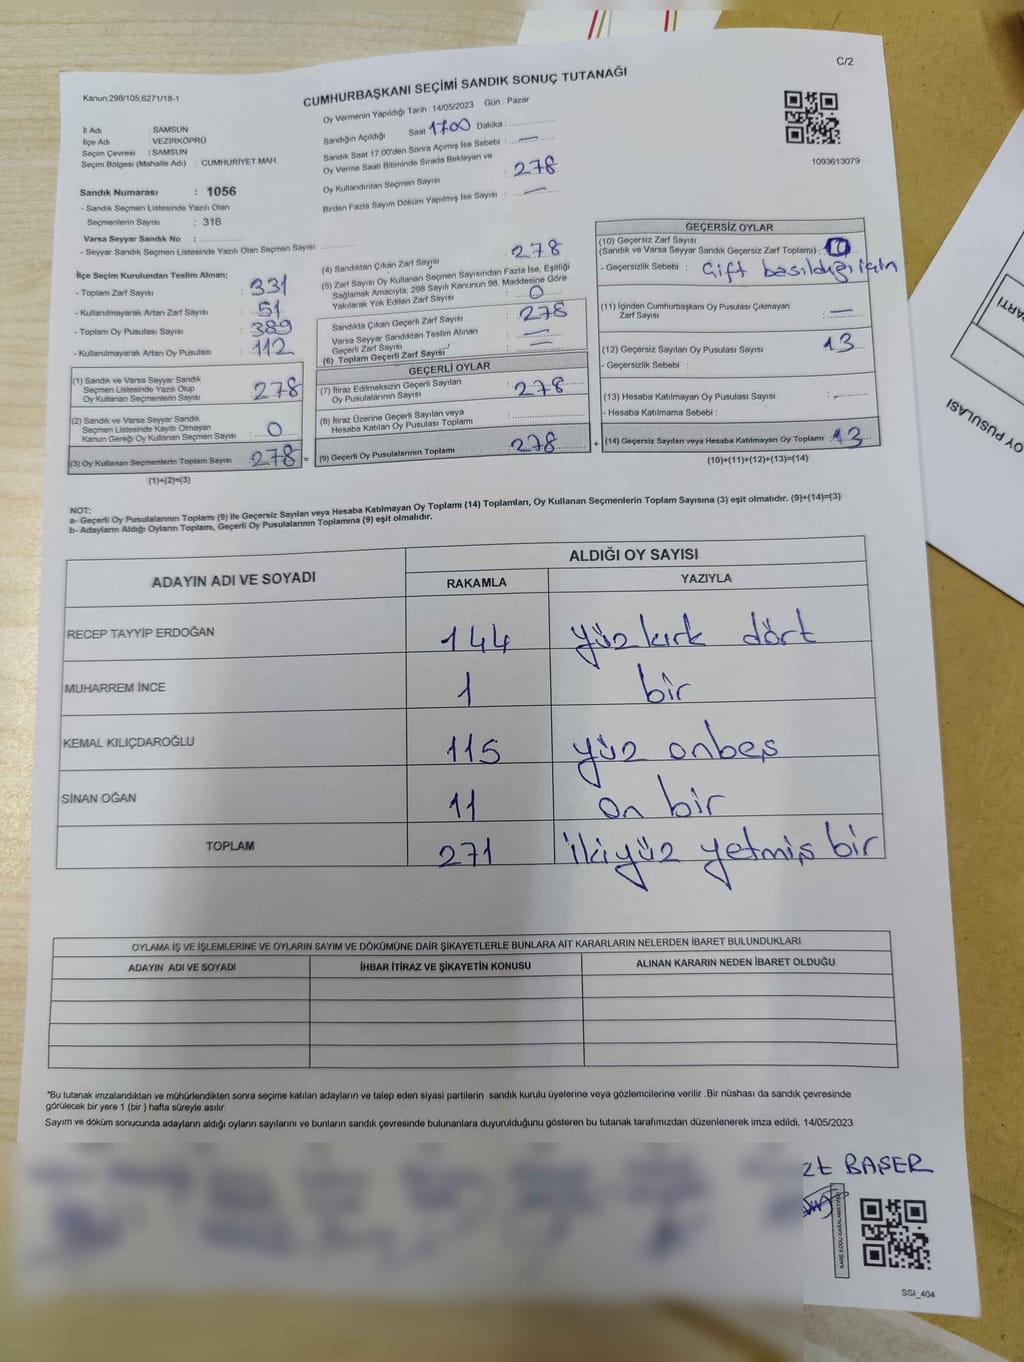 C/2
Kanun;298/105;6271/18-1
CUMHURBAŞKANI SEÇİMİ SANDIK SONUÇ TUTANAĞI
Oy Vermenin Yapıldığı Tarih : 14/05/2023 Gün : Pazar
İl Adı : SAMSUN
İlçe Adı : VEZİRKÖPRÜ
Seçim Çevresi : SAMSUN
Seçim Bölgesi (Mahalle Adı) : CUMHURİYET MAH.
Sandığın Açıldığı Saat 1700 Dakika :
Sandık Saat 17.00'den Sonra Açımış İse Sebebi : —
Oy Verme Saati Bitiminde Sırada Bekleyen ve
Oy Kullandırılan Seçmen Sayısı : 278
Birden Fazla Sayım Döküm Yapılmış İse Sayısı : —
1093613079
Sandık Numarası : 1056
- Sandık Seçmen Listesinde Yazılı Olan
Seçmenlerin Sayısı : 316
Varsa Seyyar Sandık No :
- Seyyar Sandık Seçmen Listesinde Yazılı Olan Seçmen Sayısı:
İlçe Seçim Kurulundan Teslim Alınan;
- Toplam Zarf Sayısı : 331
- Kullanılmayarak Artan Zarf Sayısı : 51
- Toplam Oy Pusulası Sayısı : 389
- Kullanılmayarak Artan Oy Pusulası : 112
(1) Sandık ve Varsa Seyyar Sandık
Seçmen Listesinde Yazılı Olup
Oy Kullanan Seçmenlerin Sayısı : 278
(2) Sandık ve Varsa Seyyar Sandık
Seçmen Listesinde Kayıtlı Olmayan
Kanun Gereği Oy Kullanan Seçmen Sayısı : 0
(3) Oy Kullanan Seçmenlerin Toplam Sayısı : 278 =
(1)+(2)=(3)
(4) Sandıktan Çıkan Zarf Sayısı : 278
(5) Zarf Sayısı Oy Kullanan Seçmen Sayısından Fazla İse, Eşitliği
Sağlamak Amacıyla; 298 Sayılı Kanunun 98. Maddesine Göre
Yakılarak Yok Edilen Zarf Sayısı : 0
Sandıkta Çıkan Geçerli Zarf Sayısı : 278
Varsa Seyyar Sandıktan Teslim Alınan
Geçerli Zarf Sayısı : —
(6) Toplam Geçerli Zarf Sayısı : —
GEÇERLİ OYLAR
(7) İtiraz Edilmeksizin Geçerli Sayılan
Oy Pusulalarının Sayısı : 278
(8) İtiraz Üzerine Geçerli Sayılan veya
Hesaba Katılan Oy Pusulası Toplamı :
(9) Geçerli Oy Pusulalarının Toplamı : 278 +
GEÇERSİZ OYLAR
(10) Geçersiz Zarf Sayısı
(Sandık ve Varsa Seyyar Sandık Geçersiz Zarf Toplamı) :
- Geçersizlik Sebebi : Çift basıldığı için
(11) İçinden Cumhurbaşkanı Oy Pusulası Çıkmayan
Zarf Sayısı : —
(12) Geçersiz Sayılan Oy Pusulası Sayısı : 13
- Geçersizlik Sebebi :
(13) Hesaba Katılmayan Oy Pusulası Sayısı :
- Hesaba Katılmama Sebebi :
(14) Geçersiz Sayılan veya Hesaba Katılmayan Oy Toplamı : 13
(10)+(11)+(12)+(13)=(14)
NOT:
a- Geçerli Oy Pusulalarının Toplamı (9) ile Geçersiz Sayılan veya Hesaba Katılmayan Oy Toplamı (14) Toplamları, Oy Kullanan Seçmenlerin Toplam Sayısına (3) eşit olmalıdır. (9)+(14)=(3)
b- Adayların Aldığı Oyların Toplamı, Geçerli Oy Pusulalarının Toplamına (9) eşit olmalıdır.
ADAYIN ADI VE SOYADI ALDIĞI OY SAYISI
RAKAMLA YAZIYLA
RECEP TAYYİP ERDOĞAN 144 yüzkırk dört
MUHARREM İNCE 1 bir
KEMAL KILIÇDAROĞLU 115 yüz onbeş
SİNAN OĞAN 11 on bir
TOPLAM 271 ikiyüz yetmiş bir
OYLAMA İŞ VE İŞLEMLERİNE VE OYLARIN SAYIM VE DÖKÜMÜNE DAİR ŞİKAYETLERLE BUNLARA AİT KARARLARIN NELERDEN İBARET BULUNDUKLARI
ADAYIN ADI VE SOYADI İHBAR İTİRAZ VE ŞİKAYETİN KONUSU ALINAN KARARIN NEDEN İBARET OLDUĞU
*Bu tutanak imzalandıktan ve mühürlendikten sonra seçime katılan adayların ve talep eden siyasi partilerin sandık kurulu üyelerine veya gözlemcilerine verilir .Bir nüshası da sandık çevresinde
görülecek bir yere 1 (bir ) hafta süreyle asılır.
Sayım ve döküm sonucunda adayların aldığı oyların sayılarını ve bunların sandık çevresinde bulunanlara duyurulduğunu gösteren bu tutanak tarafımızdan düzenlenerek imza edildi. 14/05/2023
zt BAŞER
KARE KODU KARALAMAYINIZ
SSI_404
OY PUSULASI